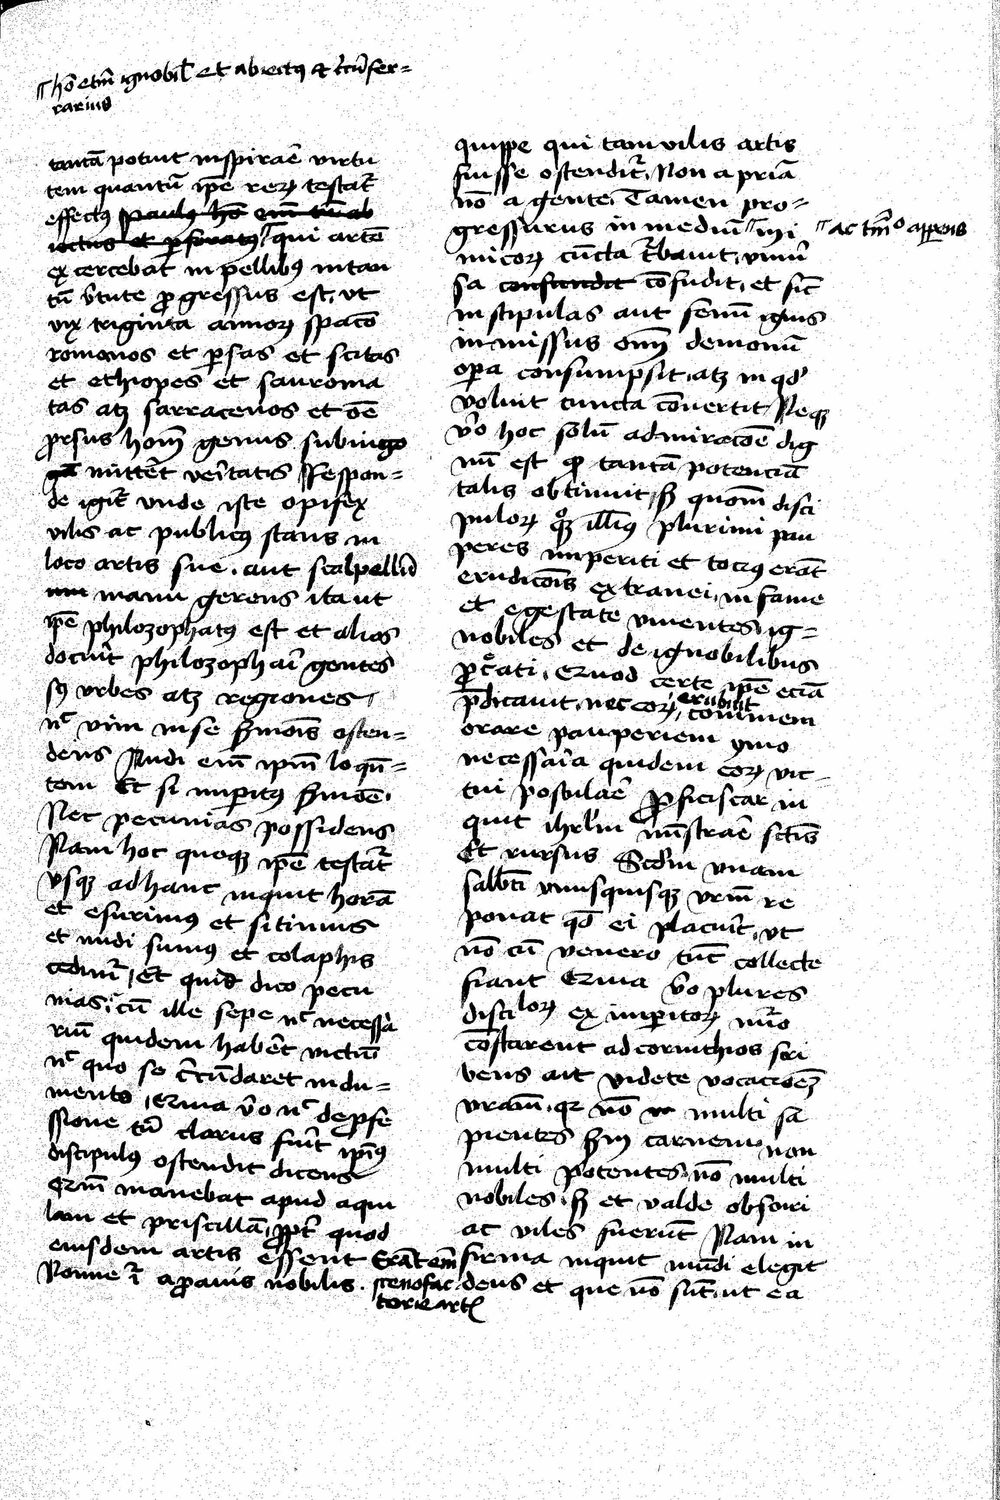 hō etiā ignobil et abiectus et circūfer=
rarius
tantā potuit inspirare virtu
tem quantū ipē rerum testat̄
effectus paulus hō enī tm̄ ab
iectus et perforatus qui artē
excercebat in pellibus in tan
tū vtute progressus est, vt
vix triginta annorum spacō
romanos et persas et scitas
et ethiopes et sauroma
tas atque sarracenos et oē
prorsus hom̄ genus sub iugo
mitteret veritatis Respon=
de igitur vnde iste opifex
vilis ac publicus stans in
loco artis sue. aut scalpellū
manu gerens ita ut
ipē philozophatus est et alias
docuit philozophari gentes
sz vrbes atque regiones,
nc vim in se sermonis osten=
dens Audi enī ipm̄ loquē=
tem Et si imperitus sermone.
Nec pecunias possidens
Nam hoc quoque ipē testat̄
vsque ad hanc inquit horā
et esurimus et sitimus
et nudi sumus et colaphis
cedim̄, Et quid dico pecu
nias, cū ille sepe nc necessa
riū quidem haberet victum
nc quo se circūdaret indu=
mento, Erma vo nc de profe
ssione tm̄ clarus fuit ipius
discipulus ostendit dicens
Erm̄ manebat apud aqui
lam et priscillā, propt quod
eiusdem artis essent Erāt enī
scenofac
torie artis
Nonne r̄i a prauis nobilis.
quippe qui tam vilis artis
fuisse ostendit̄, Non a priā
nō a gente, Tamen pro=
gressurus in mediū ini
ac tm̄o apparens
micorum cūcta t̄bauit, vniu̅
sa confundit cōfudit, et sic
in stipulas aut fenū ignis
inmissus om̄ demonū
opera consumpsit, atque in qd
voluit cuncta cōuertit, Neque
vo hoc solū admiracōe dig
nū est quod tantā potenciā
talis obtinuit, sz quom̄ disci
pulorum quoque illius plurimi pau
peres imperiti et tocius erāt
erudicōis extranei, in fame
et egestate viuentes, ig=
nobiles et de ignobilibus
procreati, Quod certe ipē eciā
predicauit, nec eorum erubuit commem
orare pauperiem ymo
necessaria quidem eorum vic
tui postulare Proficiscar in
quit ihrlm ministrare sctis
Et rursus Secdm vnam
sabbti vnusquisque vrm̄ re
ponat qd ei placuit, vt
nō cū venero tūc collecte
fiant Erma vo plures
discilorum ex imperitorum nuo
constarent ad corinthios scri
bens ait videte vocacōem
vram̄, qr nō multi sa
pientes sm carnem, non
multi potentes, nō multi
nobiles, sz et valde obscuri
ac viles fuerūt Nam in
firma inquit mūdi elegit
deus et que nō sūt, ut ea